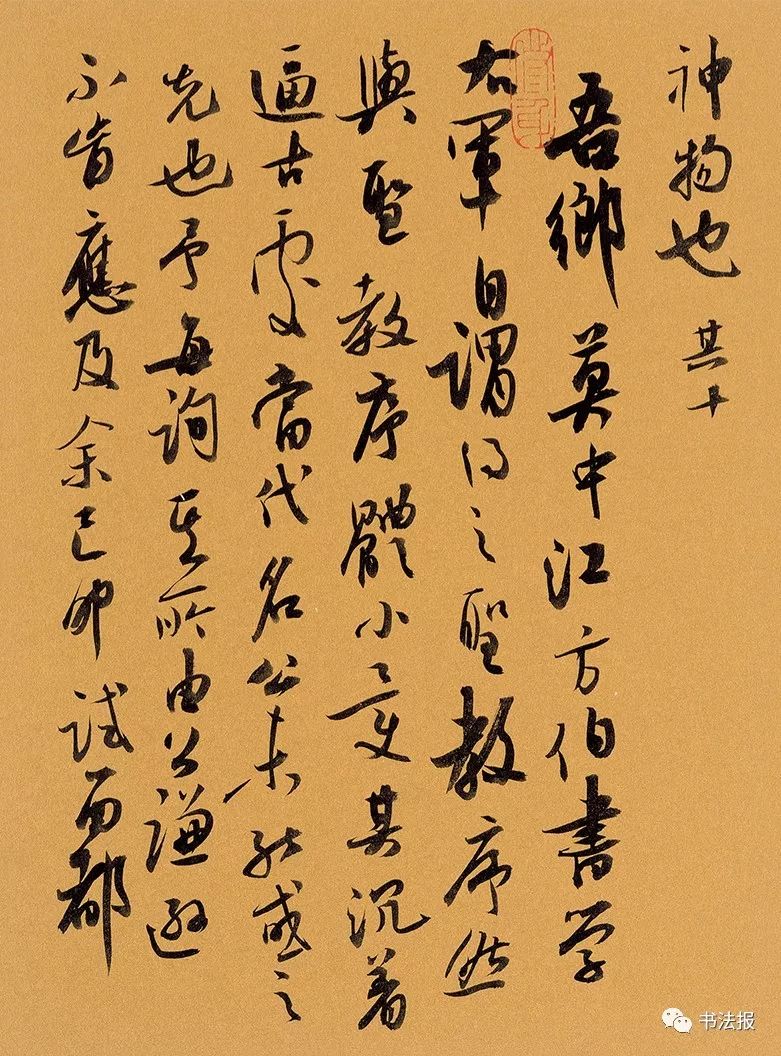 神物也 其十
吾鄉莫中江方伯書学
右軍自謂得之聖教序然
與聖教序體小變其沉着
逼古處當代名公未能或之
先也予每詢其所由公謙遜
不肯應及余己卯試留都
书法报